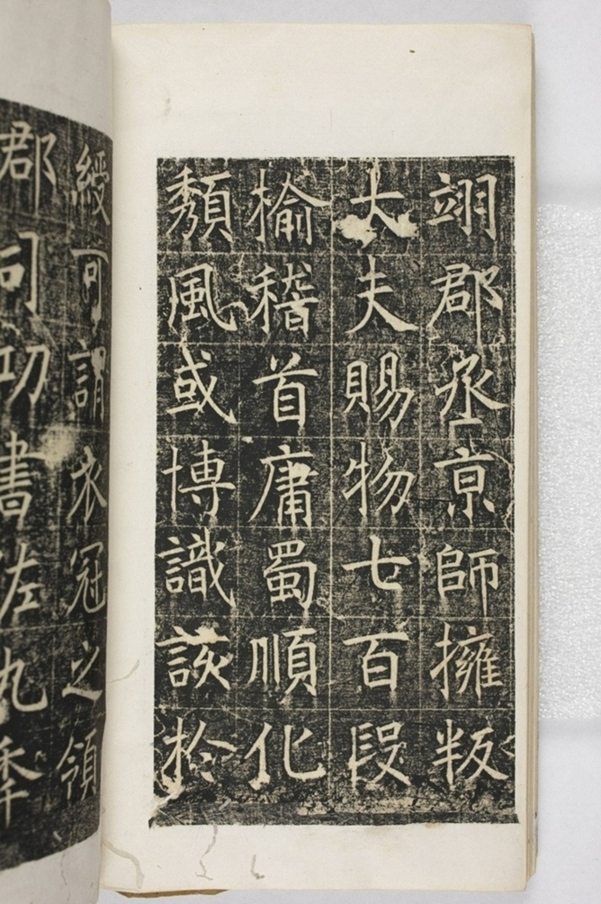 翊郡丞亰師擁叛
大夫賜物七百段
榆稽首庸蜀順化
頹風或博識該於
綬可謂衣冠之領
郡司功書佐九秊